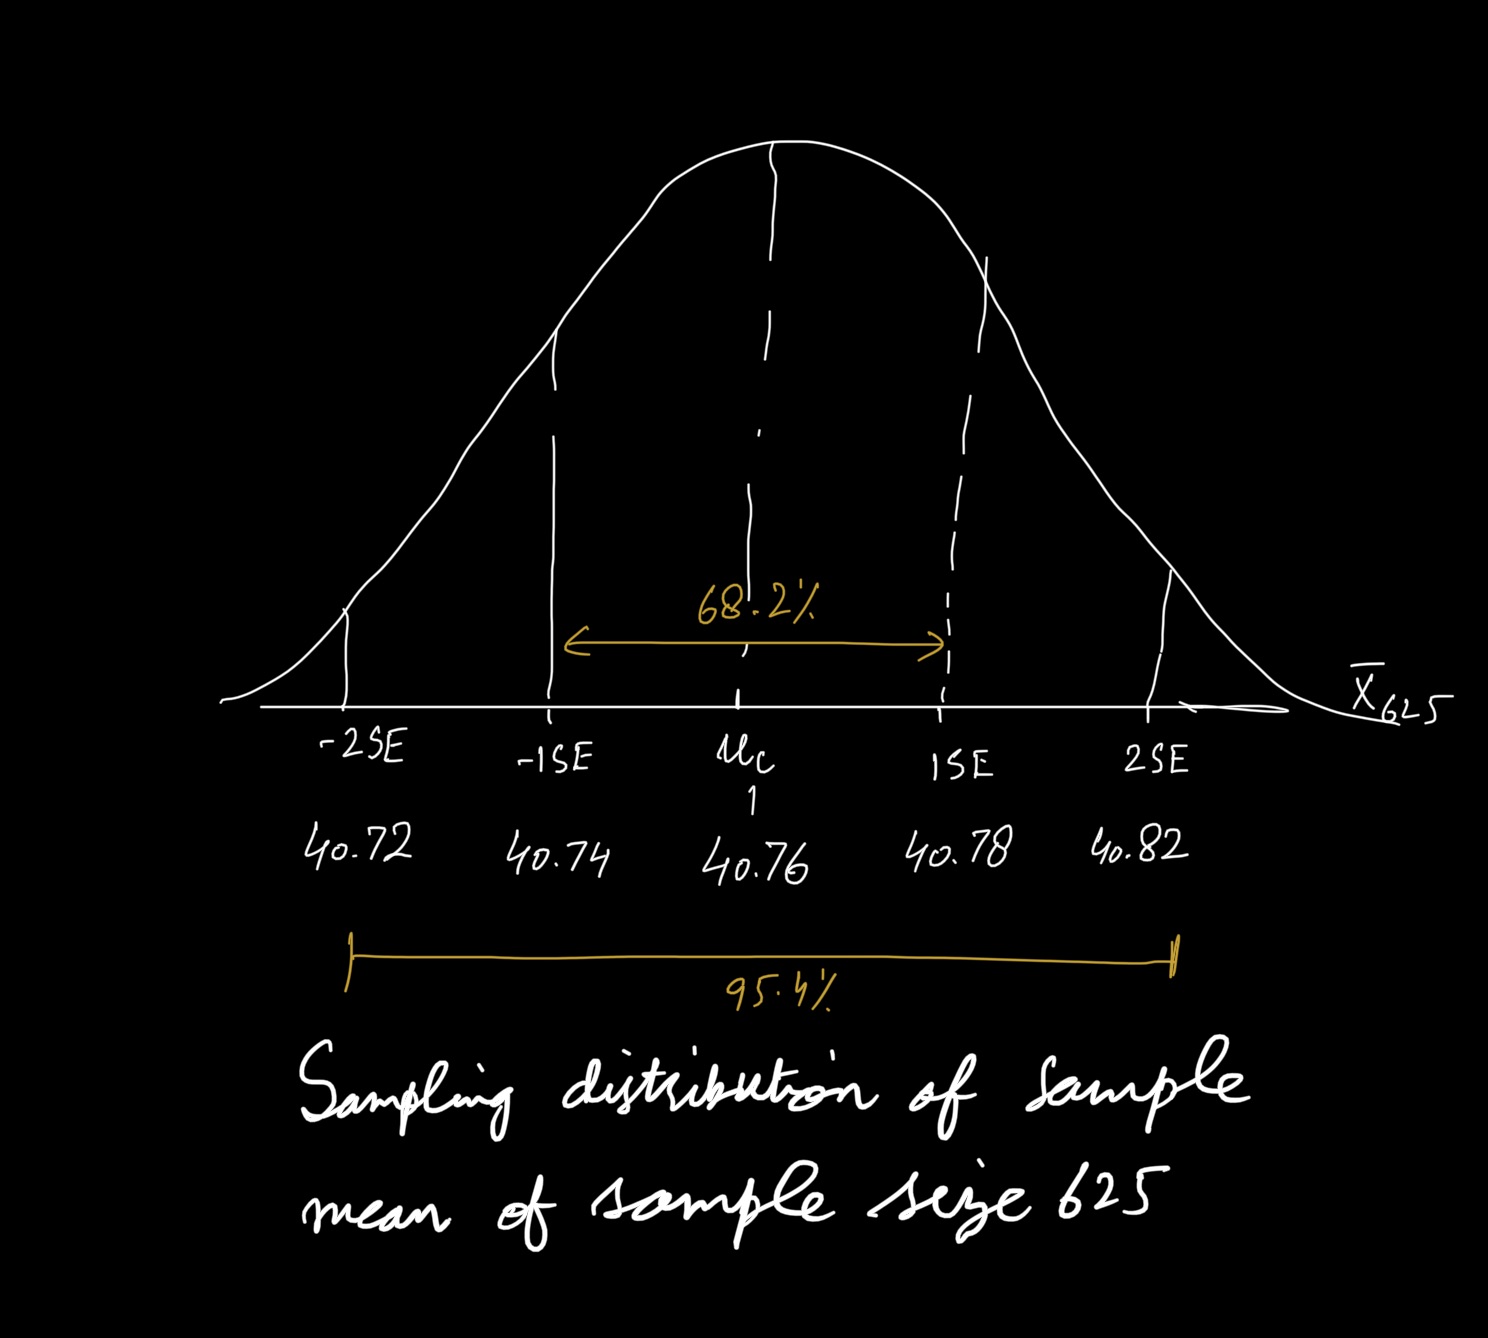 68.2%
X̄625
-2SE -1SE μc 1SE 2SE
40.72 40.74 40.76 40.78 40.82
95.4%
Sampling distribution of sample
mean of sample size 625